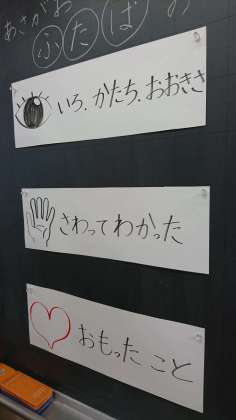 あさがお の
ふたば
いろ、かたち、おおきさ
さわってわかった
おもったこと